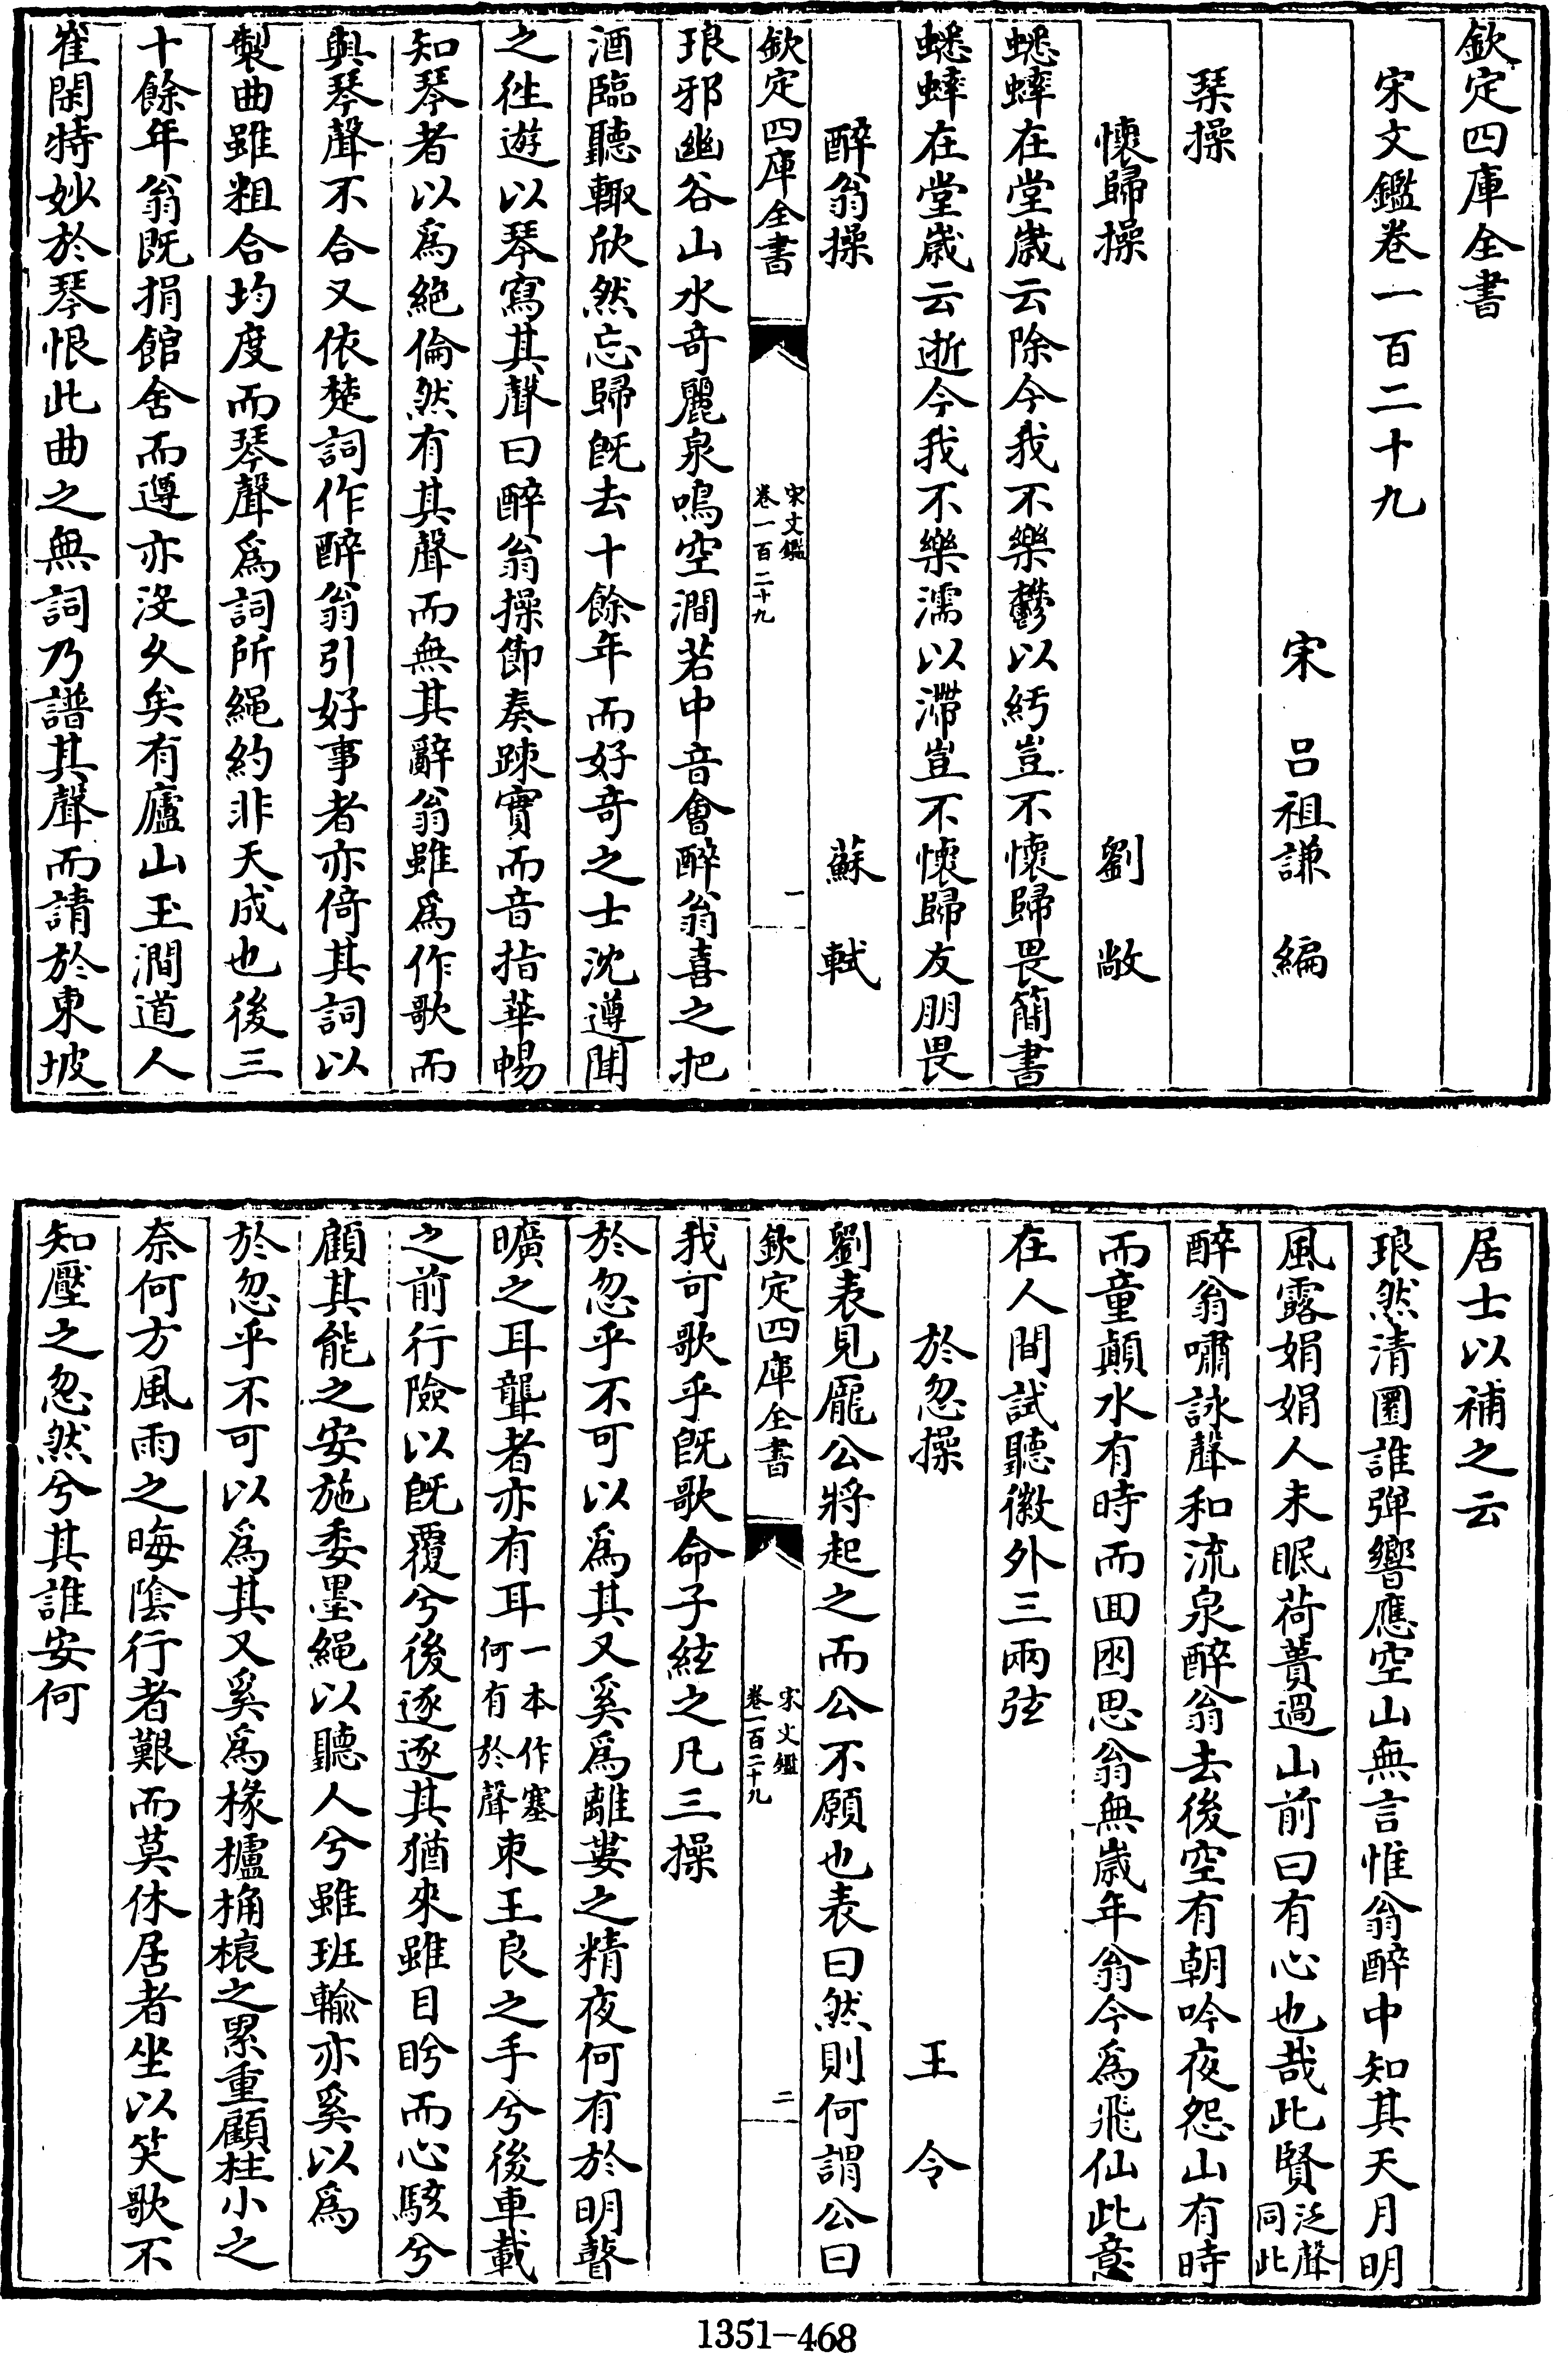 欽定四庫全書
宋文鑑卷一百二十九
宋 呂祖謙 編
琹操
懷歸操 劉敞
蟋蟀在堂歲云除今我不樂鬱以紆豈不懷歸畏簡書
蟋蟀在堂歲云逝今我不樂濡以滯豈不懷歸友朋畏
醉翁操 蘇軾
欽定四庫全書 宋文鑑 卷一百二十九 一
琅邪幽谷山水奇麗泉鳴空澗若中音會醉翁喜之把
酒臨聽輙欣然忘歸旣去十餘年而好奇之士沈遵聞
之徃遊以琴寫其聲曰醉翁操節奏踈實而音指華暢
知琴者以爲絶倫然有其聲而無其辭翁雖爲作歌而
與琴聲不合又依楚詞作醉翁引好事者亦倚其詞以
製曲雖粗合均度而琴聲爲詞所繩約非天成也後三
十餘年翁既捐館舍而遵亦沒久矣有廬山玉澗道人
崔閑特妙於琴恨此曲之無詞乃譜其聲而請於東坡
居士以補之云
琅然清圜誰弾響應空山無言惟翁醉中知其天月明
風露娟娟人未眠荷蕢過山前曰有心也哉此賢泛聲同此
醉翁嘯詠聲和流泉醉翁去後空有朝吟夜怨山有時
而童顛水有時而囬囦思翁無歲年翁今爲飛仙此意
在人間試聽徽外三兩弦
於忽操 王令
劉表見龐公將起之而公不願也表曰然則何謂公曰
欽定四庫全書 宋文鑑 卷一百二十九 二
我可歌乎旣歌命子絃之凡三操
於忽乎不可以爲其又奚爲離婁之精夜何有於明瞽
曠之耳聾者亦有耳一本作塞何有於聲束王良之手兮後車載
之前行險以旣覆兮後逐逐其猶來雖目盻而心駭兮
顧其能之安施委墨繩以聽人兮雖班輸亦奚以爲
於忽乎不可以爲其又奚爲椽櫨桷榱之累重顧柱小之
奈何方風雨之晦陰行者艱而莫休居者坐以笑歌不
知壓之忽然兮其誰安何
1351-468